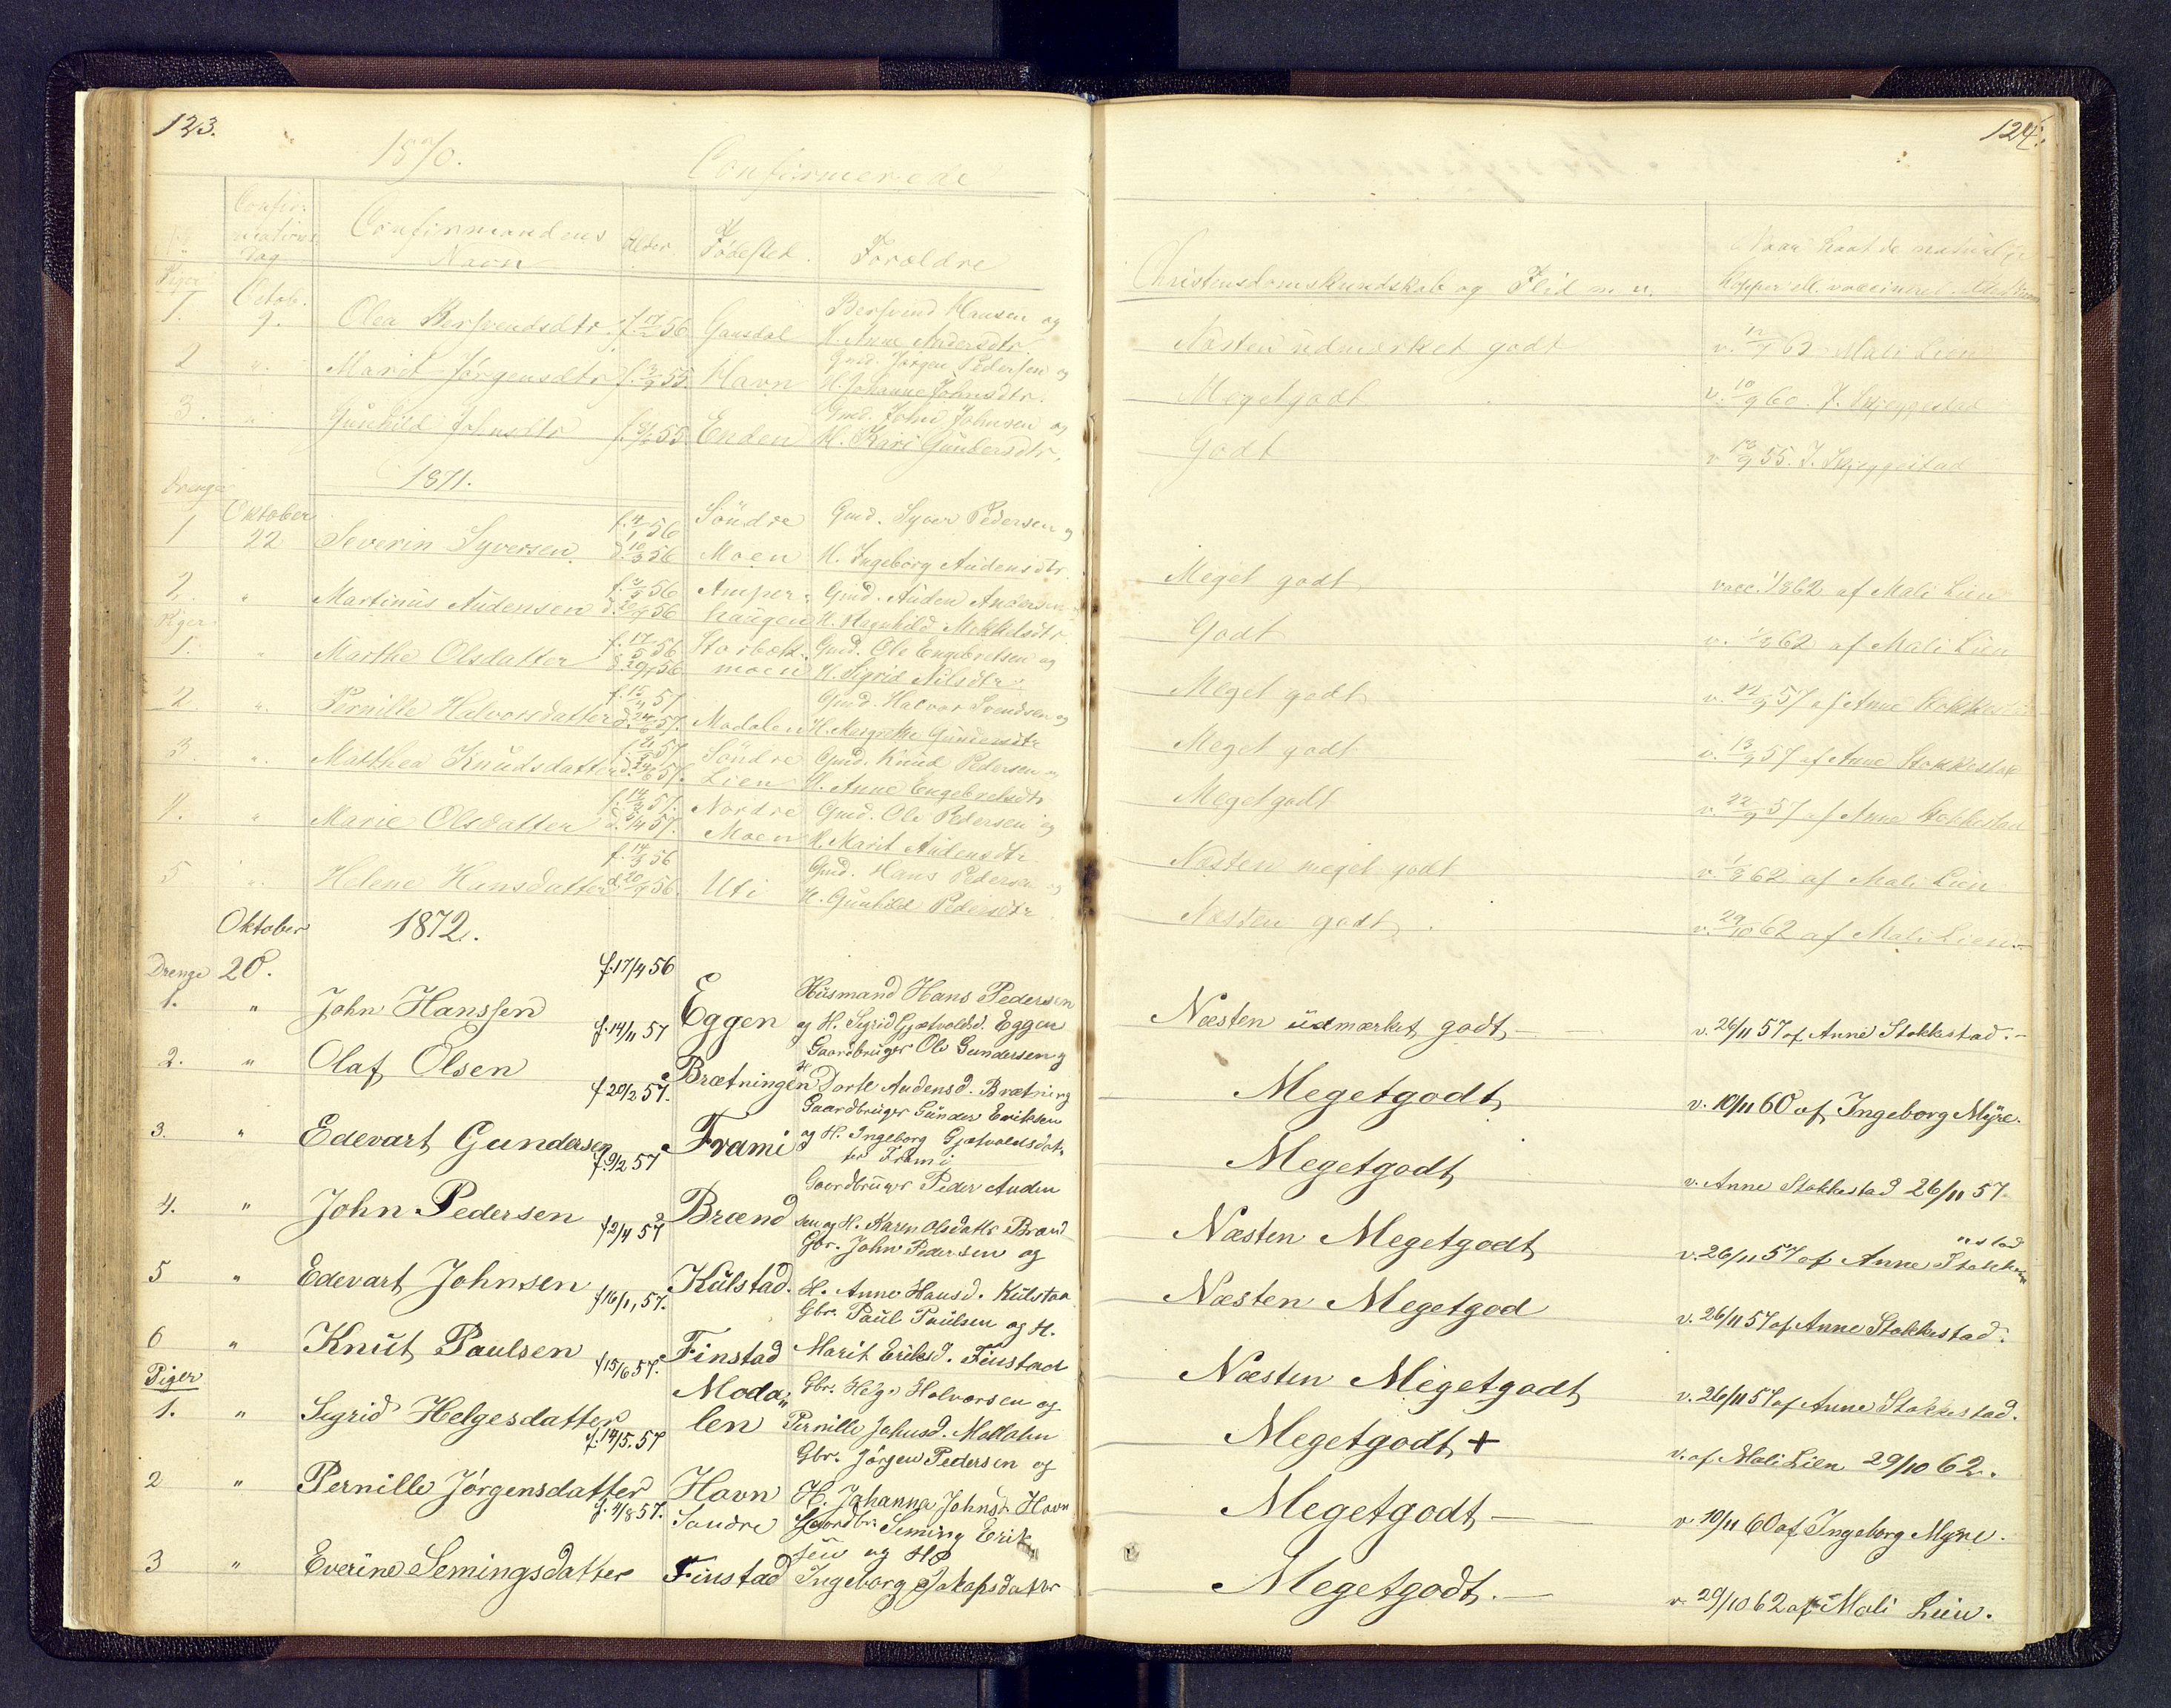 123.
1870. Confirmerede
Confir-
mations
Dag
Confirmandens
Navn
Alder.
Fødested.
Forældre
Piger
Octob.
1. 9. Olea Bersvendsdtr. Gansdal Bersvend Hansen og
H. Anne Andersdtr.
2 " Marit Jørgensdtr f. 3/9 55. Havn Gmd. Jørgen Pedersen og
H. Johanne Johnsdtr.
3. " Gunhild Johnsdtr Enden Gmd. John Johnsen og
H. Kari Gundersdtr.
1871.
Drenge
Oktober
1 22 Severin Syversen f. 4/1 56 d. 10/3 56 Söndre Moen Gmd. Syver Pedersen og
H. Ingeborg Audensdtr.
2. " Martinus Audensen Amper-
haugen Gmd. Auden Andersen
H. Ragnhild Mekkelsdtr.
Piger
1. " Marthe Olsdatter f. 17/5 56 d. 29/ 56 Storbæk-
moen Gmd. Ole Engebretsen og
H. Sigrid Nilsdtr.
2. " Pernille Halvorsdatter f. 15/4 57 Modalen Gmd. Halvor Svendsen og
H. Margrethe Gundersdtr
3. " Matthea Knudsdatter Söndre
Lien Gmd. Knud Pedersen og
H. Anne Engebretsdtr
4. " Marie Olsdatter Nordre
Moen Gmd. Ole Pedersen og
H. Marit Audensdtr.
5 " Helene Hansdatter Uti Gmd. Hans Pedersen og
H. Gunhild Pedersdtr
Oktober 1872.
Drenge 20.
1. " John Hanssen f. 17/4 56 Eggen Husmand Hans Pedersen
og H. Sigrid Gjætvoldsd. Eggen
2. " Olaf Olsen f. 14/11 57 Brætningen Gaardbruger Ole Gundersen og
H. Dorte Audensd. Brætning
3. " Edevart Gundersen f 20/2 57. Frami Gaardbruger Gunder Eriksen
og H. Ingeborg Gjætvoldsdat-
ter Frami
4. " John Pedersen f. 9/2 57 Brænd Gaardbruger Peder Auden
sen og H. Karen Olsdatter Brænd
5 " Edevart Johnsen f 2/4 57 Kulstad. Gbr. John Pedersen og
H. Anne Hansd. Kulstad
6 " Knut Paulsen f 16/1, 57. Finstad Gbr. Paul Paulsen og H.
Marit Eriksd. Finstad
Piger
1. " Sigrid Helgesdatter f 15/6 57. Moda„
len Gbr. Helge Halvorsen og
Pernille Johnsd. Modalen
2 " Pernille Jörgensdatter f. 14/5. 57 Havn Gbr. Jörgen Pedersen og
H. Johanna Johnsd. Havn
3 " Everine Semingsdatter f. 4/8 57. Söndre
Finstad Gaardbr. Seming Erik
sen og H
Ingeborg Jakopsdatter
124.
Christendomskundskab og Flid m. v.
Naar havt de naturlige
Kopper ell. vaccineret
Næsten udmærket godt v. Mali Lien
Megetgodt v. 10/9 60. J. Skjeggestad
Godt v 55. J. Skjeggestad
Meget godt vacc. 1/8 62 af Mali Lien
Godt v. 62 af Mali Lien
Meget godt v. 22/9 57 af Anne Stokkestad
Meget godt v. 13/9 57 af Anne Stokkestad
Megetgodt v. 22/9 57 af Anne Stokkestad
Næsten meget godt v. 62 af Mali Lien
Næsten godt. v. 29/10 62 af Mali Lien.
Næsten üdmærket godt, v. 26/11 57 af Anne Stokkestad.
Megetgodt v. 10/11 60 af Ingeborg Myre.
Megetgodt v. Anne Stokkestad 26/11 57.
Næsten Megetgodt v. 26/11 57 af Anne Stokke
Næsten Megetgod v. 26/11 57 af Anne Stokkestad.
Næsten Megetgodt v. 26/11 57 af Anne Stokkestad.
Megetgodt + v. af Mali Lien 29/10 62.
Megetgodt v. 10/11 60 af Ingeborg Myre.
Megetgodt. v. 29/10 62 af Mali Lien.